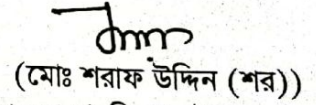 (মোঃ শরাফ উদ্দিন (শর))